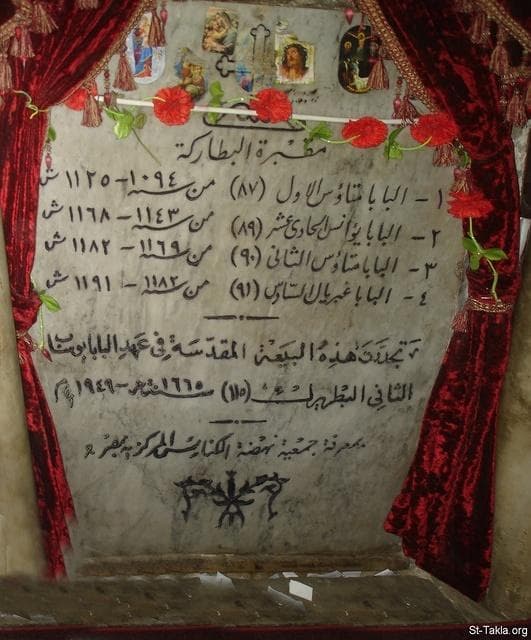 مقبرة البطاركة
١ - البابا متاؤس الاول (٨٧) من سنة ١٠٩٤ - ١١٢٥ ش
٢ - البابا يوأنس الحادى عشر (٨٩) من سنة ١١٤٣ - ١١٦٨ ش
٣ - البابا متاؤس الثانى (٩٠) من سنة ١١٦٩ - ١١٨٢ ش
٤ - البابا غبريال السادس (٩١) من سنة ١١٨٢ - ١١٩١ ش
تجددت هذه البيعة المقدسة فى عهد البابا يوساب
الثانى البطريرك (١١٥) سنة ١٦٦٥ ش - ١٩٤٩ م
بمعرفة جمعية نهضة الكنائس المركزية بمصر
St-Takla.org